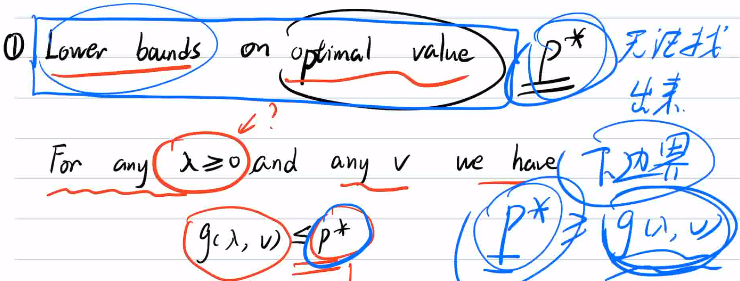 ① Lower bounds on optimal value P* 无法找
出来
?
For any λ≥0 and any v we have 下边界
g(λ, υ) ≤ p* P* ≥ g(λ, υ)